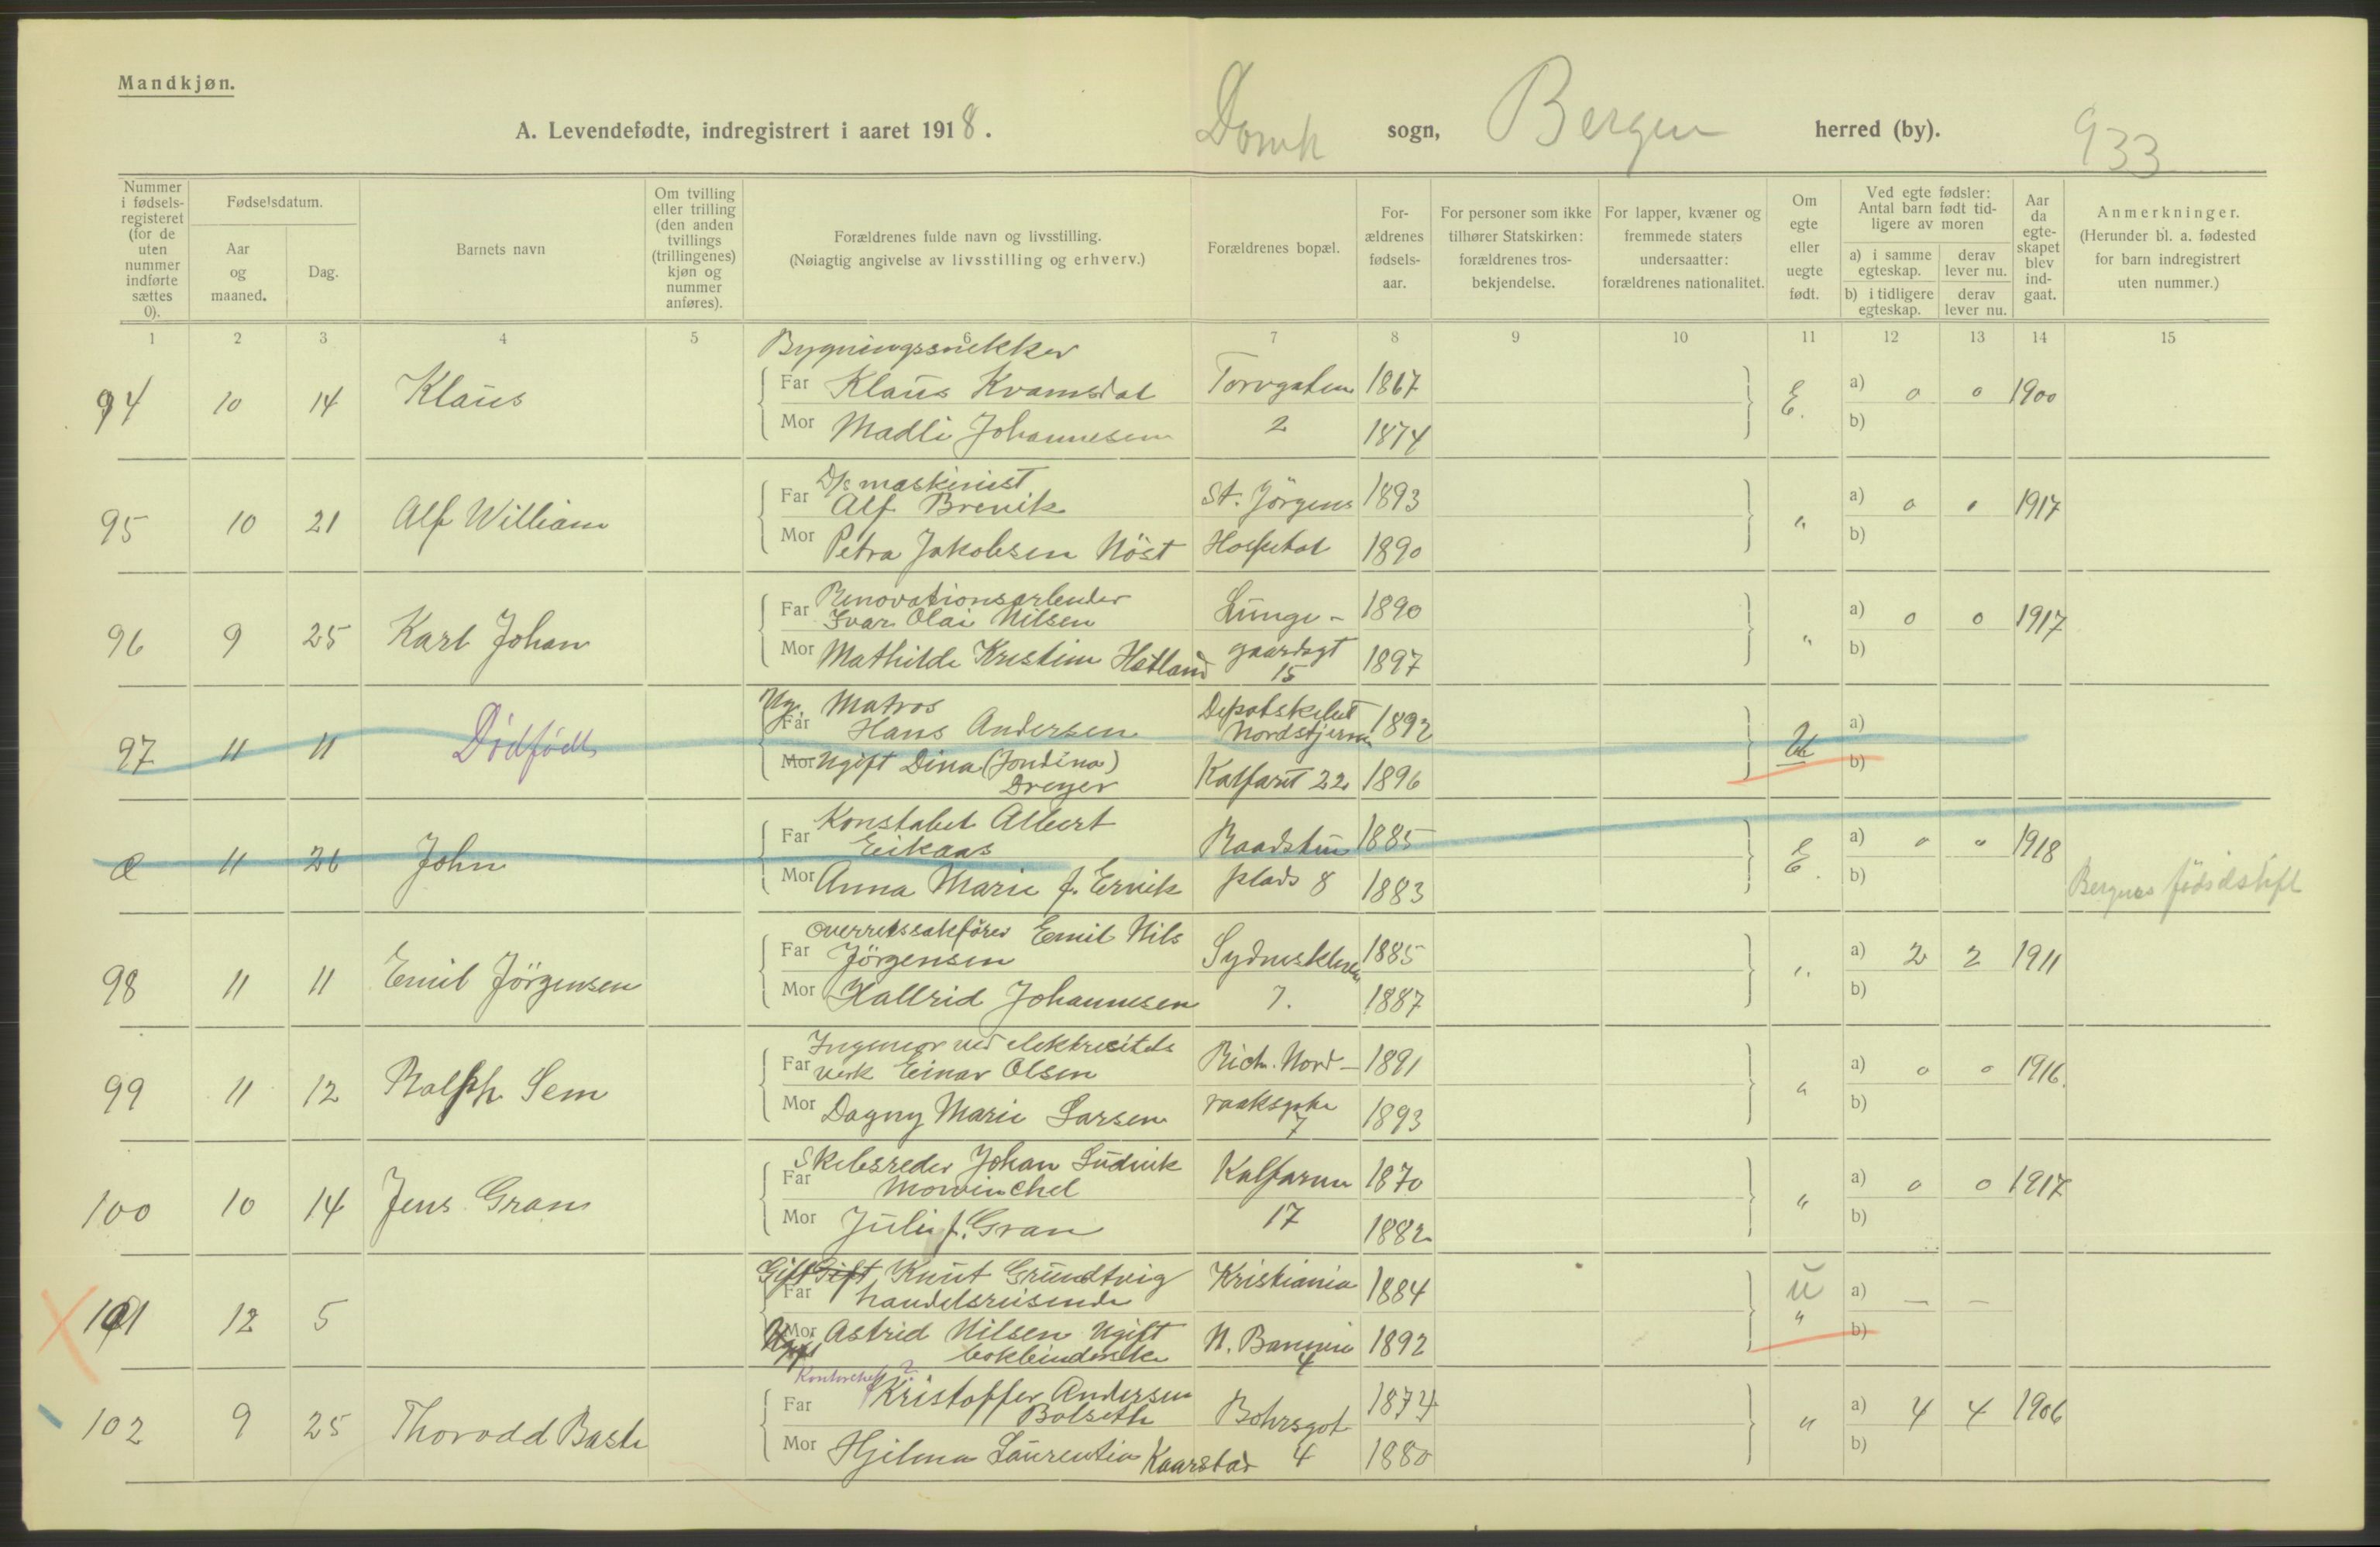 Mandkjøn.
A. Levendefødte, indregistrert i aaret 1918. Domk sogn, Bergen herred (by). 933
Nummer i fødsels- registeret (for de uten nummer indførte sættes 0).
Fødselsdatum.
Aar og maaned.
Dag.
Barnets navn
Om tvilling eller trilling (den anden tvillings (trillingenes) kjøn og nummer anføres).
Forældrenes fulde navn og livsstilling.
(Nøiagtig angivelse av livsstilling og erhverv.)
Forældrenes bopæl.
For- ældrenes fødsels- aar.
For personer som ikke tilhører Statskirken: forældrenes tros- bekjendelse.
For lapper, kvæner og fremmede staters undersaatter: forældrenes nationalitet.
Om egte eller uegte født.
Ved egte fødsler: Antal barn født tid- ligere av moren
a) i samme egteskap. derav lever nu.
b) i tidligere egteskap. derav lever nu.
Aar da egte- skapet blev ind- gaat.
Anmerkninger.
(Herunder bl. a. fødested for barn indregistrert uten nummer.)
1 2 3 4 5 6 7 8 9 10 11 12 13 14 15
Bygningssnekker
94 10 14 Klaus Far Klaus Kvamsdal Torvgaten 1867 E. a) 0 0 1900
Mor Madli Johannesen 2 1874 b)
D/s maskinist
95 10 21 Alf William Far Alf Brevik St. Jörgens 1893 " a) 0 0 1917
Mor Petra Jakobsen Nöst Hospital 1890 b)
Renovationsarbeider
96 9 25 Karl Johan Far Ivar Olai Nilsen Lunge- 1890 " a) 0 0 1917
Mor Mathilde Kristine Hatland gaardsgt 15 1897 b)
Ug. Matros Depotskibet
97 11 11 Dødfødt Far Hans Andersen Nordstjernen 1892 U a)
Mor Ugift Dina (Jondina) Dreyer Kalfaret 22 1896 b)
Konstabel Albert
0 11 26 John Far Eikaas Raadstu 1885 E. a) 0 0 1918
Mor Anna Marie f. Ervik plads 8 1883 b) Bergens fødselsstift
Overretssakfører Emil Nils
98 11 11 Emil Jörgensen Far Jörgensen Sydneskleven 1885 " a) 2 2 1911
Mor Hallrid Johannesen 7. 1887 b)
Ingeniør ved elektricitets
99 11 12 Ralph Sem Far verk Einar Olsen Rich. Nord- 1891 " a) 0 0 1916.
Mor Dagny Marie Larsen raaksgate 7 1893 b)
Skibsreder Johan Ludvik
100 10 14 Jens Gran Far Mowinchel Kalfarvn 1870 " a) 0 0 1917
Mor Julie f. Gran 17 1882 b)
Gift Gift Knut Grundtvig Kristiania
101 12 5 Far handelsreisende 1884 U " a) — —
Mor Astrid Nilsen Ugift N. Banevei 4 1892 b)
Ugift bokbinderske
Kontorchef ?
102 9 25 Thorodd Baste Far Kristoffer Andersen Bolseth Bohrsgt 1874 " a) 4 4 1906
Mor Hjelma Laurentia Kaarstad 4 1880 b)